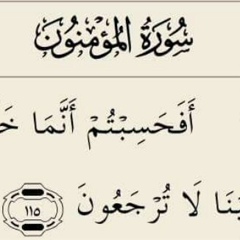 سُورَةُ المُؤْمِنُون
أَفَحَسِبْتُمْ أَنَّمَا
لَا تُرْجَعُونَ ١١٥